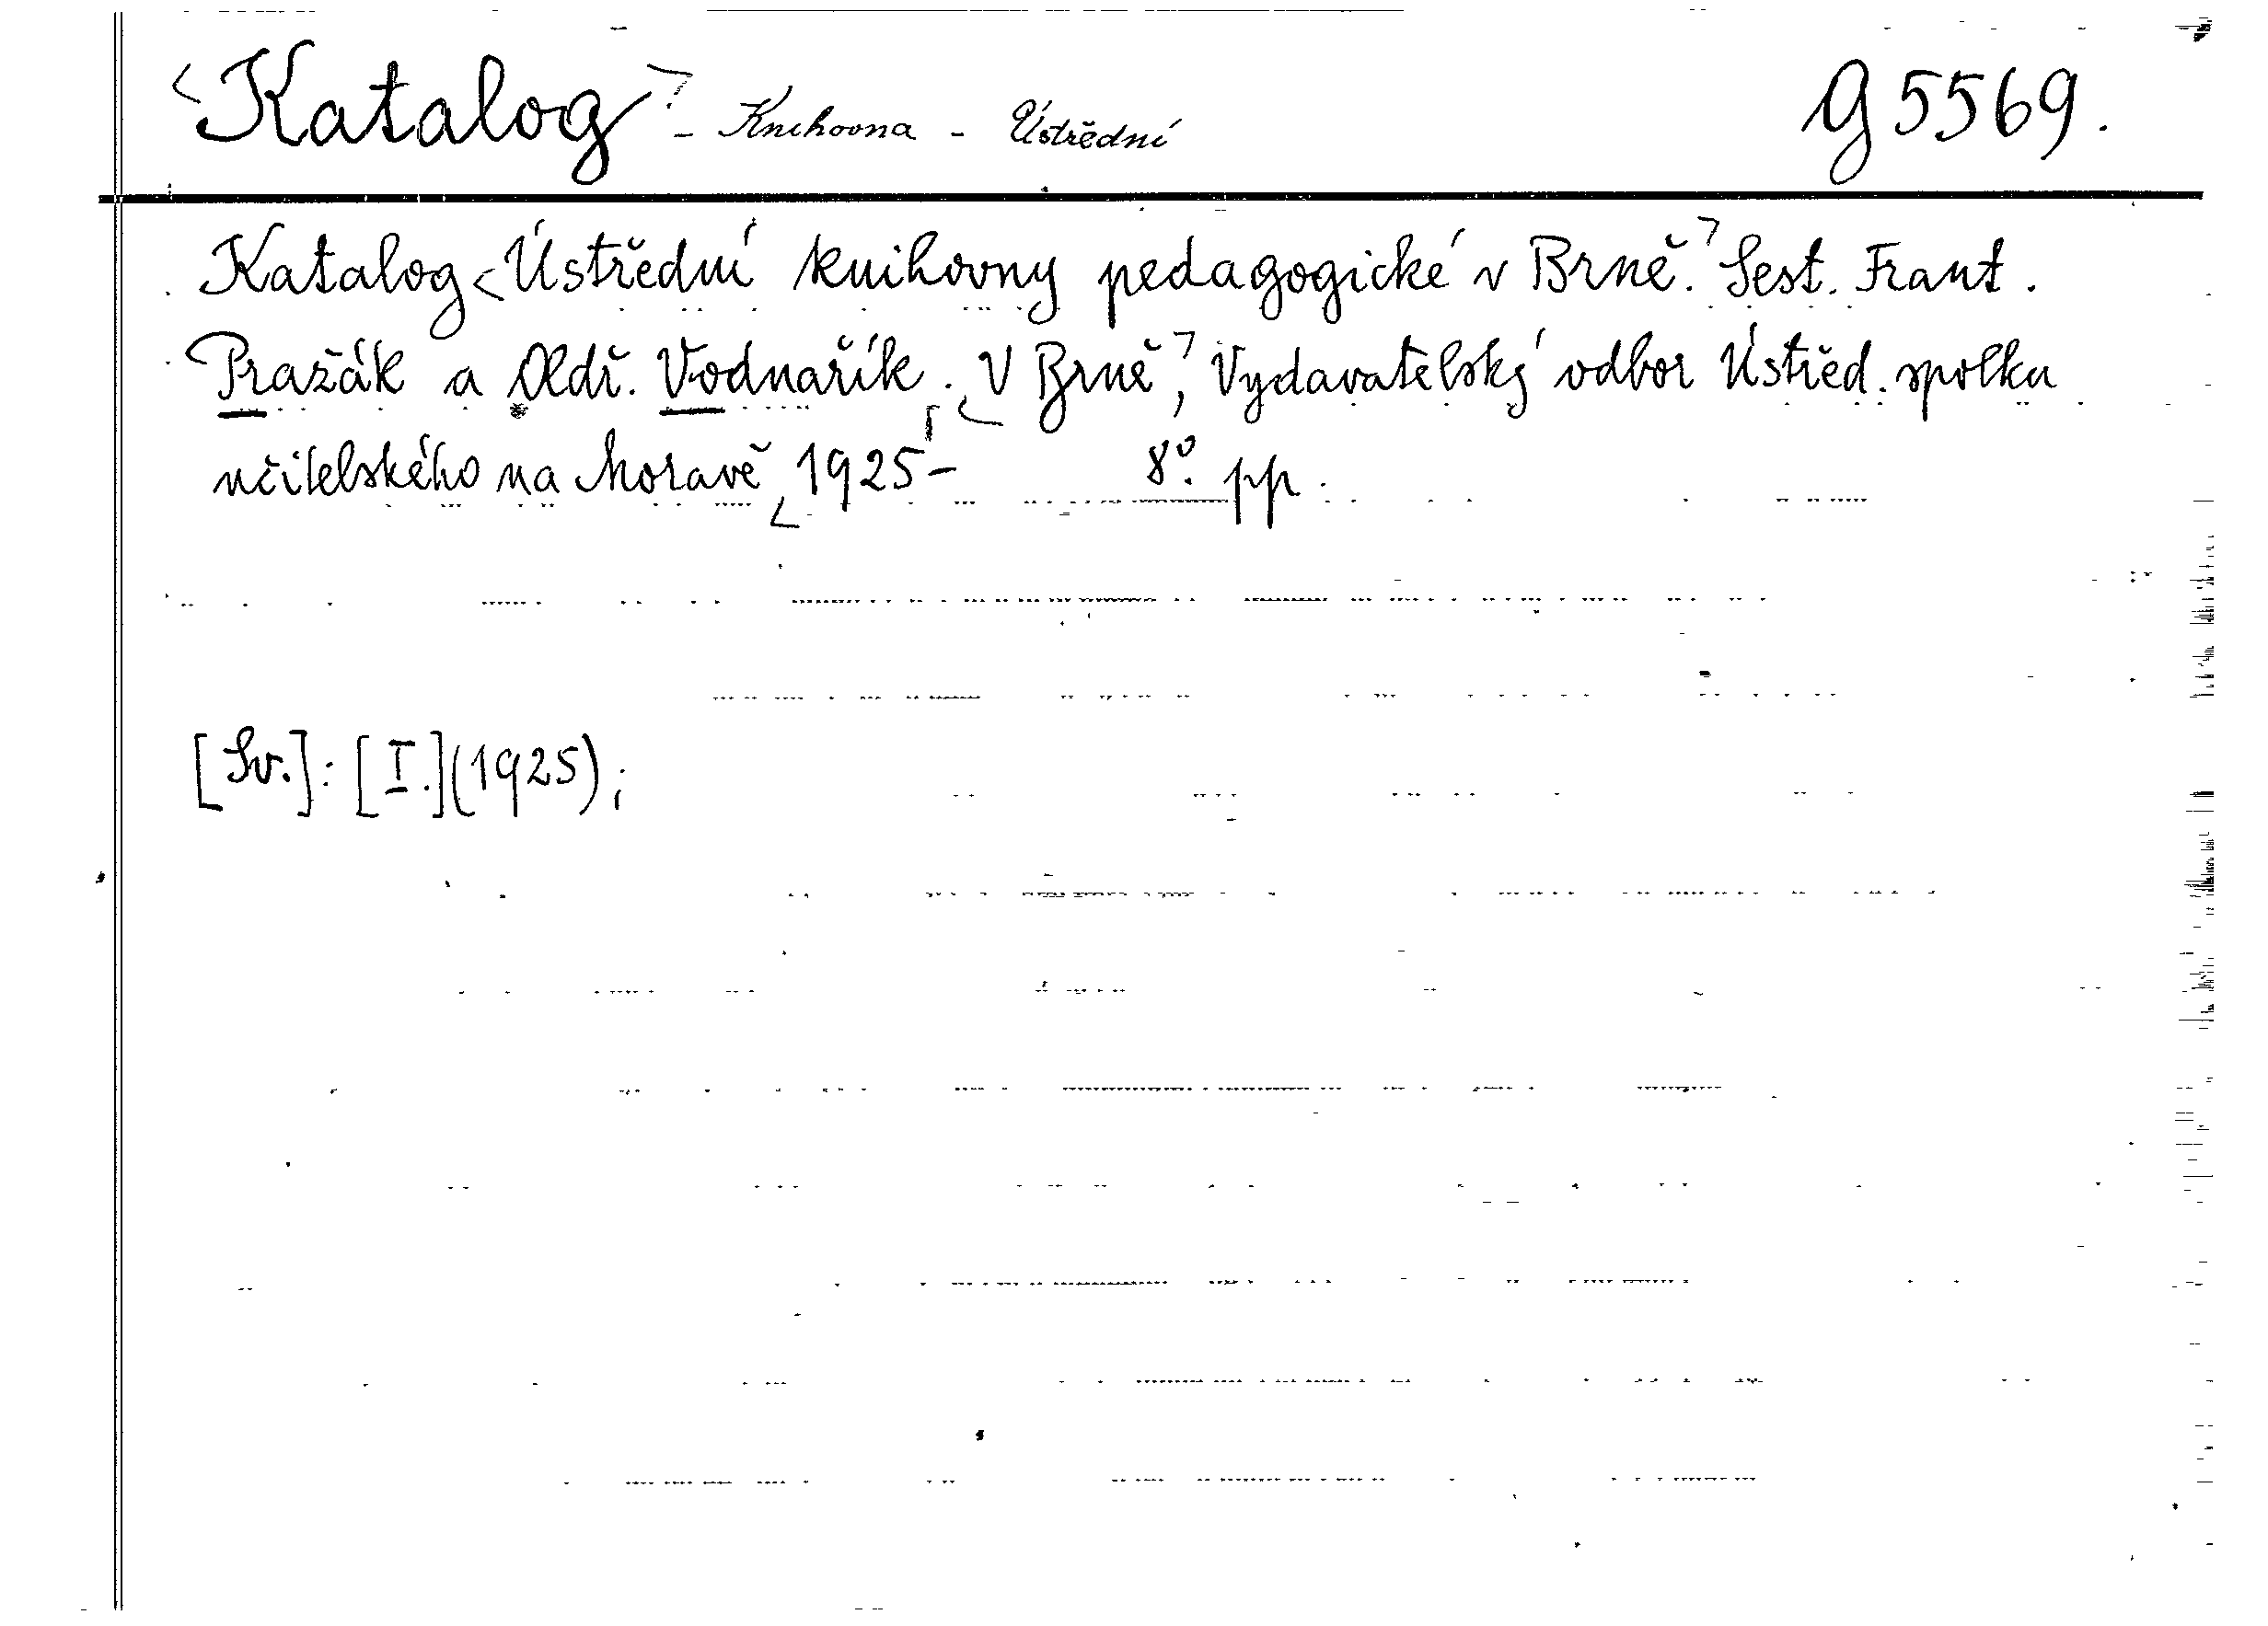 <Katalog> - Knihovna - Ústřední g 5569.
Katalog <Ústřední knihovny pedagogické v Brně.> Sest. Frant.
Pražák a Oldř. Vodnařík. V Brně, Vydavatelský odbor Ústřed. spolku
učitelského na Moravě, 1925- 8°. pp.
[Sv.]: [I.](1925);